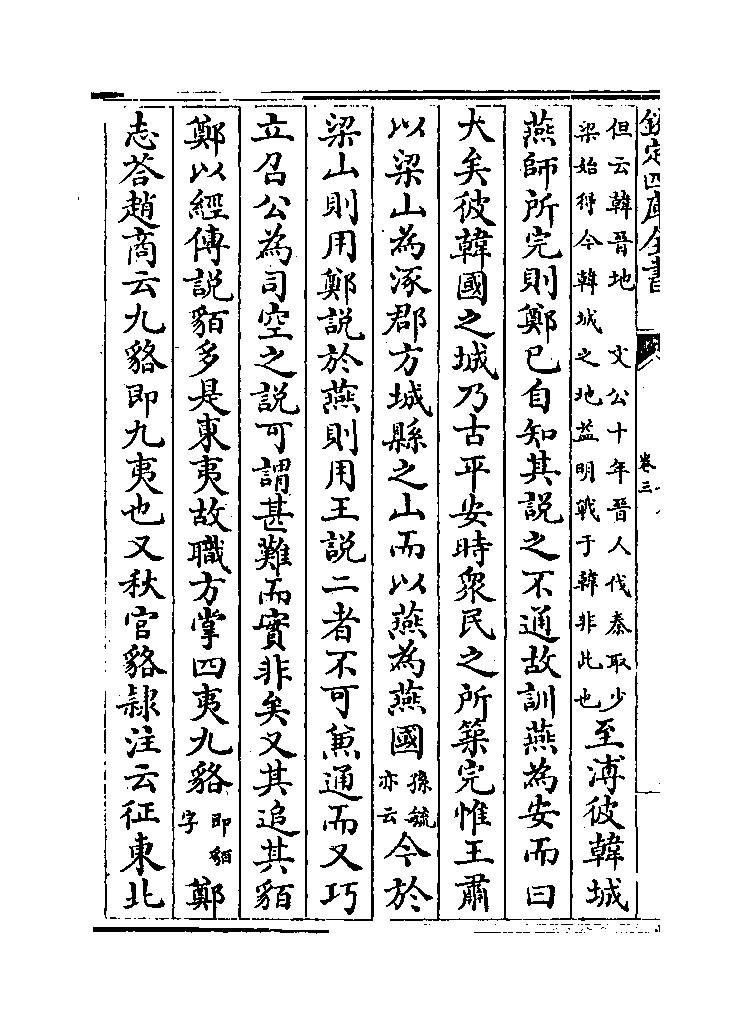 欽定四庫全書
卷三
但云韓晉地　文公十年晉人伐秦取少
梁始得今韓城之地益明戰于韓非此也
至溥彼韓城
燕師所完則鄭已自知其說之不通故訓燕為安而曰
大矣彼韓國之城乃古平安時衆民之所築完惟王肅
以梁山為涿郡方城縣之山而以燕為燕國孫毓亦云今於
梁山則用鄭說於燕則用王說二者不可兼通而又巧
立召公為司空之說可謂甚難而實非矣又其追其貊
鄭以經傳說貊多是東夷故職方掌四夷九貉即貊字鄭
志荅趙商云九貉即九夷也又秋官貉隷注云征東北